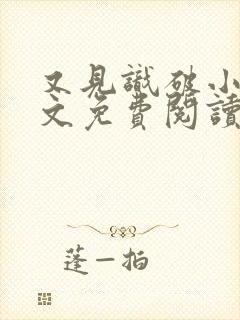 又見識破小
文免費閱讀
蓬一拍